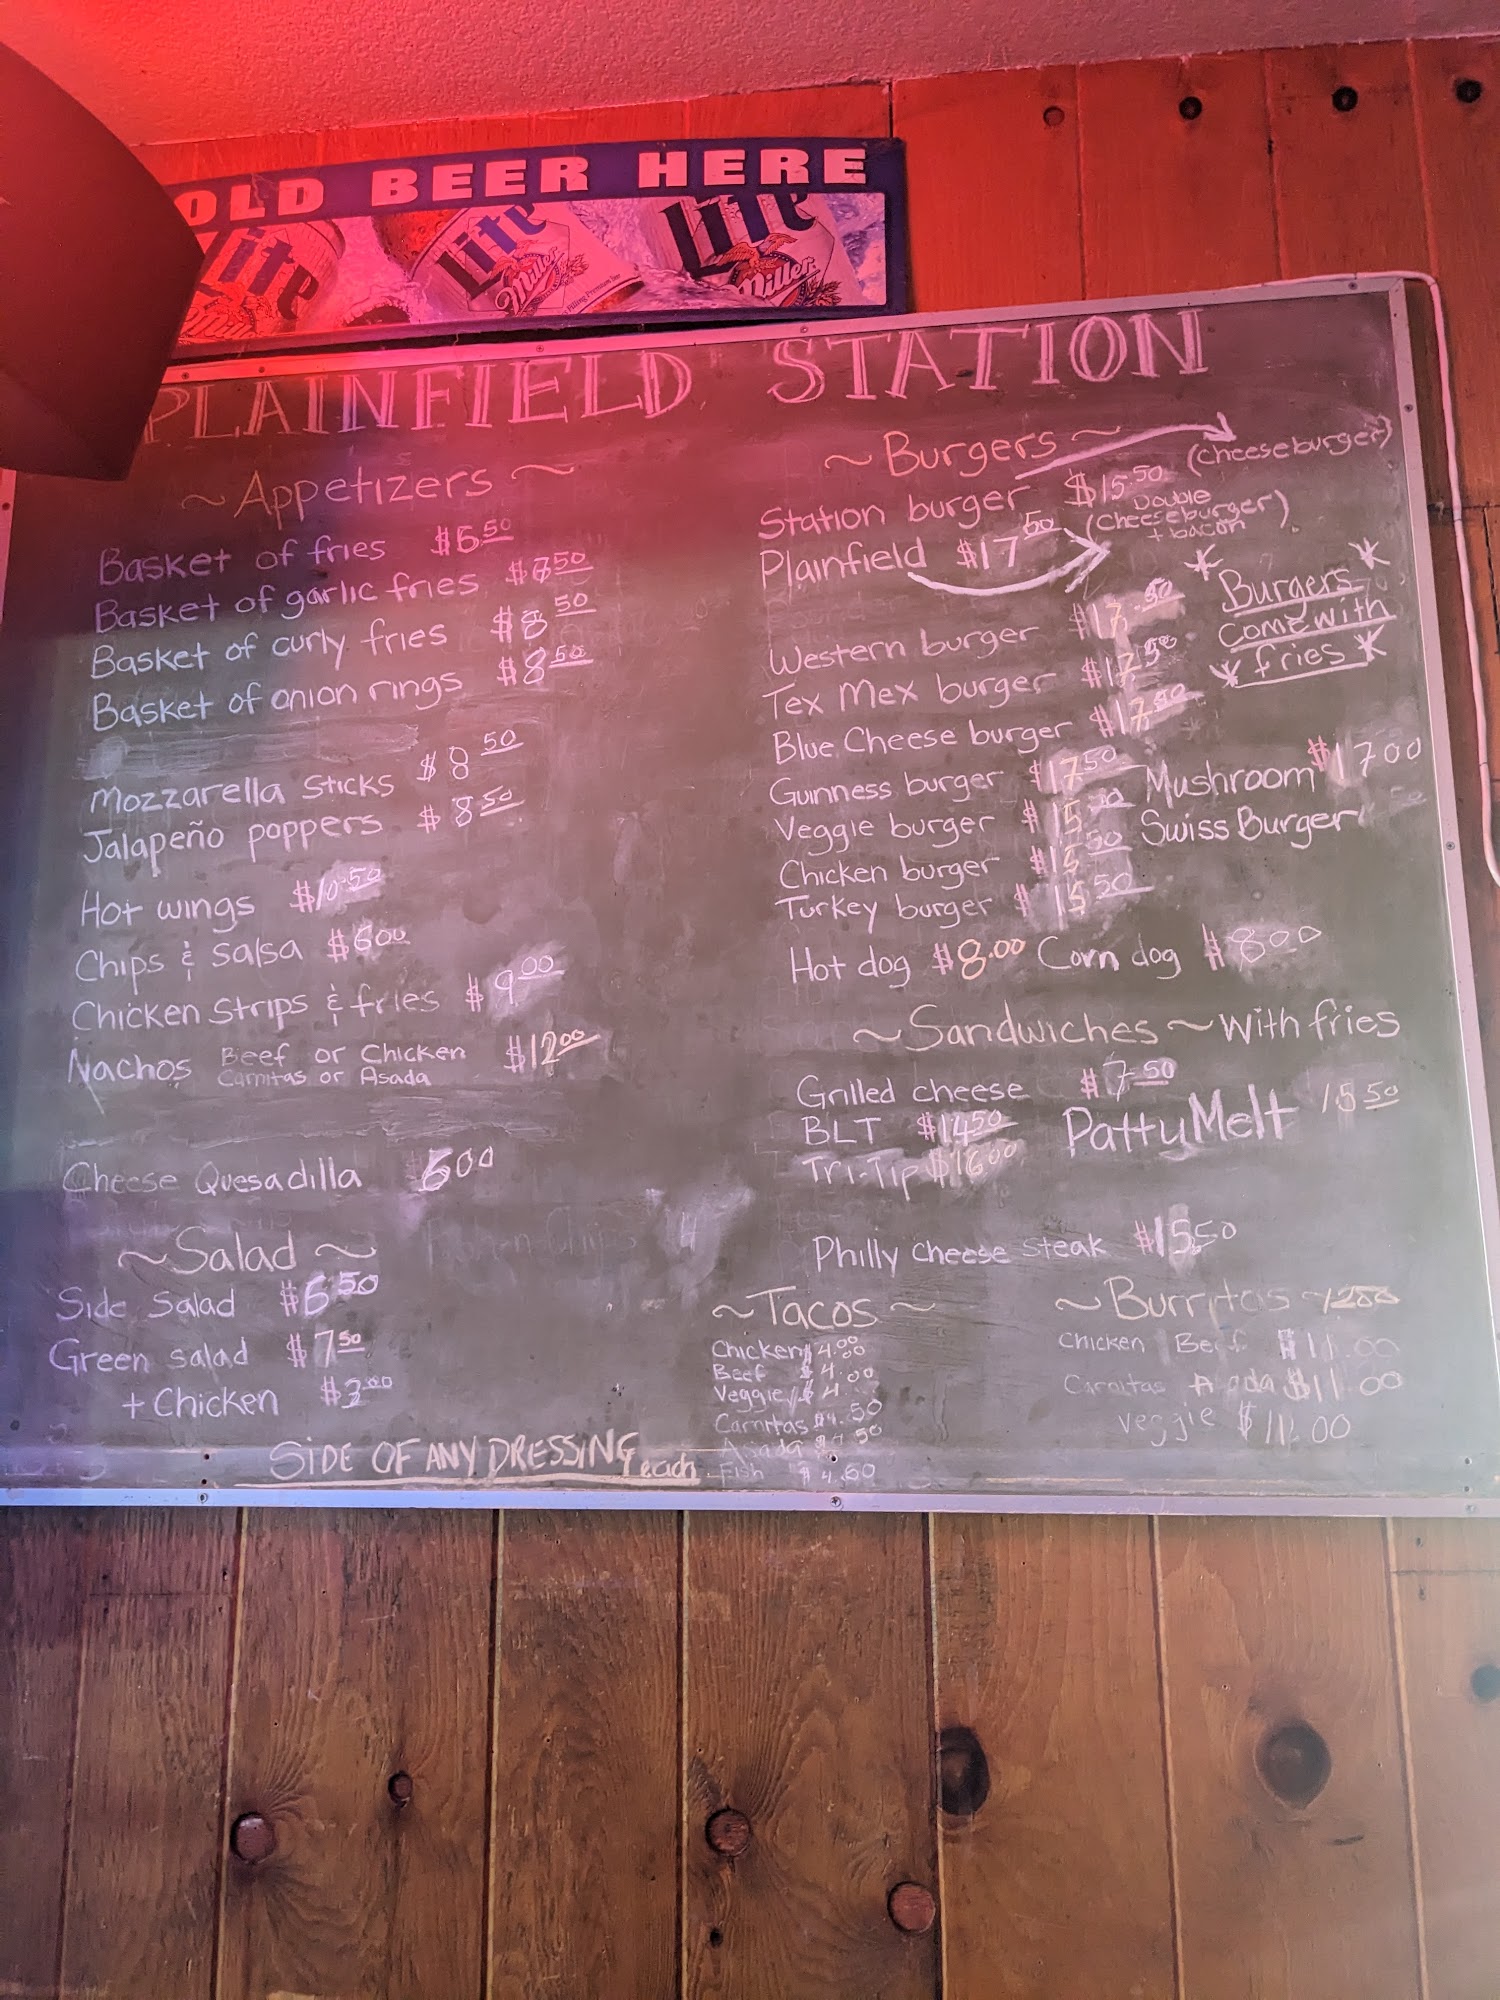 OLD BEER HERE
Lite Lite Lite
Miller Miller
PLAINFIELD STATION
~ Appetizers ~
Basket of fries $6.50
Basket of garlic fries $8.50
Basket of curly fries $8.50
Basket of onion rings $8.50
Mozzarella sticks $8.50
Jalapeño poppers $8.50
Hot wings $10.50
Chips & Salsa $6.00
Chicken Strips & fries $9.00
Nachos Beef or Chicken $12.00
Carnitas or Asada
Cheese Quesadilla 6.00
~ Salad ~
Side Salad $6.50
Green salad $7.50
+ Chicken $3.00
SIDE OF ANY DRESSING each
~ Burgers ~
Station burger $15.50 (cheeseburger)
Plainfield $17.50 (Double Cheeseburger + bacon)
* Burgers *
come with
* fries *
Western burger $17.50
Tex Mex burger $17.50
Blue Cheese burger $17.50
Guinness burger $17.50
Veggie burger $15.50
Chicken burger $15.50
Turkey burger $15.50
Mushroom $17.00
Swiss Burger
Hot dog $8.00 Corn dog $8.00
~ Sandwiches ~ with fries
Grilled cheese $7.50
BLT $14.50 Patty Melt 15.50
Tri-Tip $16.00
Philly cheese steak $15.50
~ Tacos ~
Chicken $4.00
Beef $4.00
Veggie $4.
Carnitas $4.50
Asada $4.50
Fish $4.60
~ Burritos ~ 12.00
Chicken Beef $11.00
Carnitas Asada $11.00
Veggie $11.00